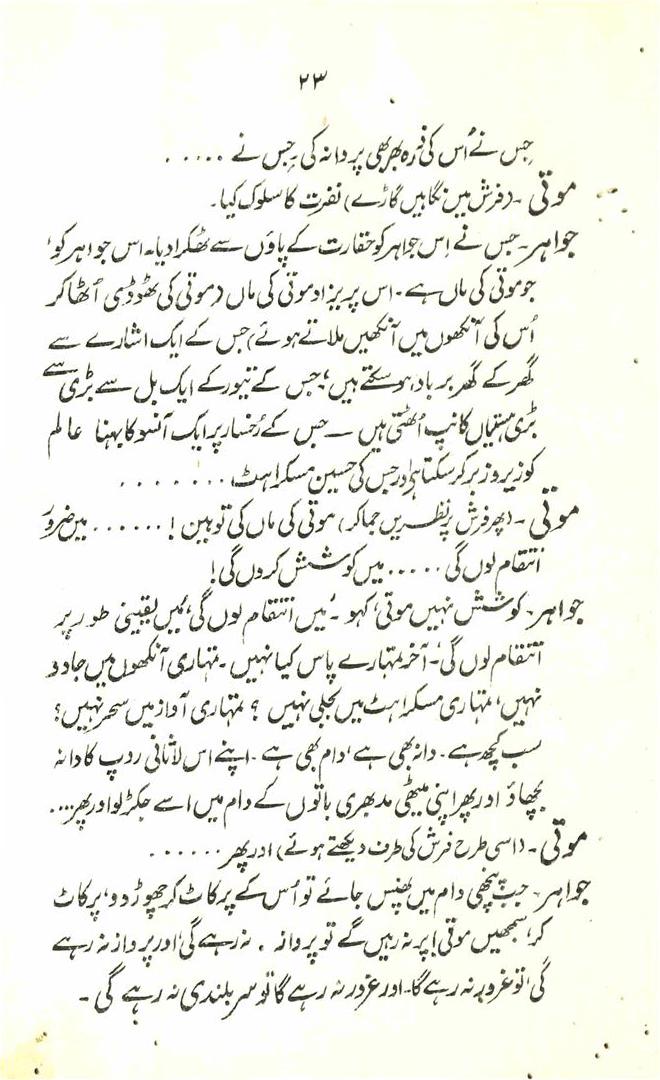 ۲۳
جس نے اُس کی ذرہ بھر بھی پروا نہ کی۔ جس نے . . . . .
موتی ۔ (فرش میں نگاہیں گاڑے) نفرت کا سلوک کیا۔
جواہر ۔ جس نے اِس جواہر کو حقارت کے پاؤں سے ٹھکرا دیا۔ اس جواہر کو'
جو موتی کی ماں ہے ۔ اس پریزاد موتی کی ماں (موتی کی ٹھوڈی اُٹھا کر
اُس کی آنکھوں میں آنکھیں ملاتے ہوئے) جس کے ایک اشارے سے
گھر کے گھر برباد ہو سکتے ہیں؛ جس کے تیور کے ایک بل سے بڑی سے
بڑی ہستیاں کانپ اُٹھتی ہیں — جس کے رُخسار پر ایک آنسو کا بہنا عالم
کو زیر و زبر کر سکتا ہے اور جس کی حسین مسکراہٹ . . . . . . . .
موتی ۔ (پھر فرش پر نظریں جما کر) موتی کی ماں کی توہین ! . . . . . . میں ضرور
انتقام لوں گی . . . . . میں کوشش کروں گی !
جواہر ۔ کوشش نہیں موتی' کہو ۔ 'میں انتقام لوں گی' 'میں یقینی طور پر
انتقام لوں گی' ۔ آخر تمہارے پاس کیا نہیں ۔ تمہاری آنکھوں میں جادو
نہیں' تمہاری مسکراہٹ میں بجلی نہیں ؟ تمہاری آواز میں سحر نہیں ؟
سب کچھ ہے ۔ دانہ بھی ہے' دام بھی ہے ۔ اپنے اس لاثانی روپ کا دانہ
بچھاؤ اور پھر اپنی میٹھی مدبھری باتوں کے دام میں اسے جکڑ لو اور پھر . . . .
موتی ۔ (اسی طرح فرش کی طرف دیکھتے ہوئے) اور پھر . . . . . .
جواہر ۔ جب پنچھی دام میں پھنس جائے تو اُس کے پر کاٹ کر چھوڑ دو' پر کاٹ
کر' سمجھیں موتی ! پر نہ رہیں گے تو پروانہ . نہ رہے گی' اور پرواز نہ رہے
گی' تو غرور نہ رہے گا۔ اور غرور نہ رہے گا تو سر بلندی نہ رہے گی ۔